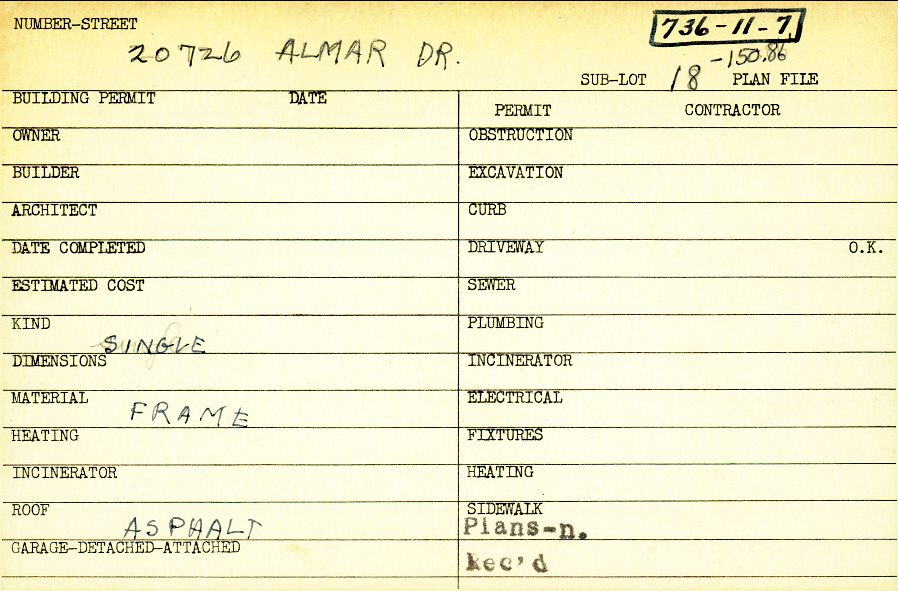 NUMBER-STREET
736-11-7
20726 ALMAR DR.
-150.86
SUB-LOT 18 PLAN FILE
BUILDING PERMIT DATE
PERMIT CONTRACTOR
OWNER
OBSTRUCTION
BUILDER
EXCAVATION
ARCHITECT
CURB
DATE COMPLETED
DRIVEWAY O.K.
ESTIMATED COST
SEWER
KIND
SINGLE
PLUMBING
DIMENSIONS
INCINERATOR
MATERIAL
FRAME
ELECTRICAL
HEATING
FIXTURES
INCINERATOR
HEATING
ROOF
ASPHALT
SIDEWALK
Plans-n.
GARAGE-DETACHED-ATTACHED
Rec'd